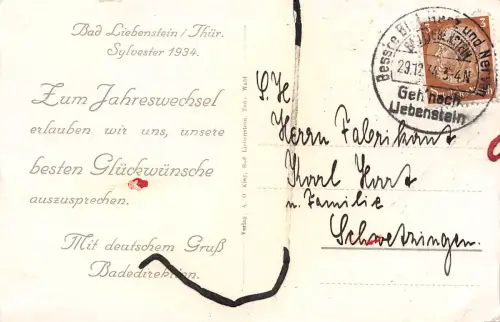 Bad Liebenstein/Thür.
Sylvester 1934.
Zum Jahreswechsel
erlauben wir uns, unsere
besten Glückwünsche
auszusprechen.
Mit deutschem Gruß
Badedirektion.
Bad Liebenstein
29.12. 34. 3-4 N
Geh' nach
Liebenstein
3
S. H.
Herrn Fabrikant
Karl Hart
u. Familie
Schwetzingen.